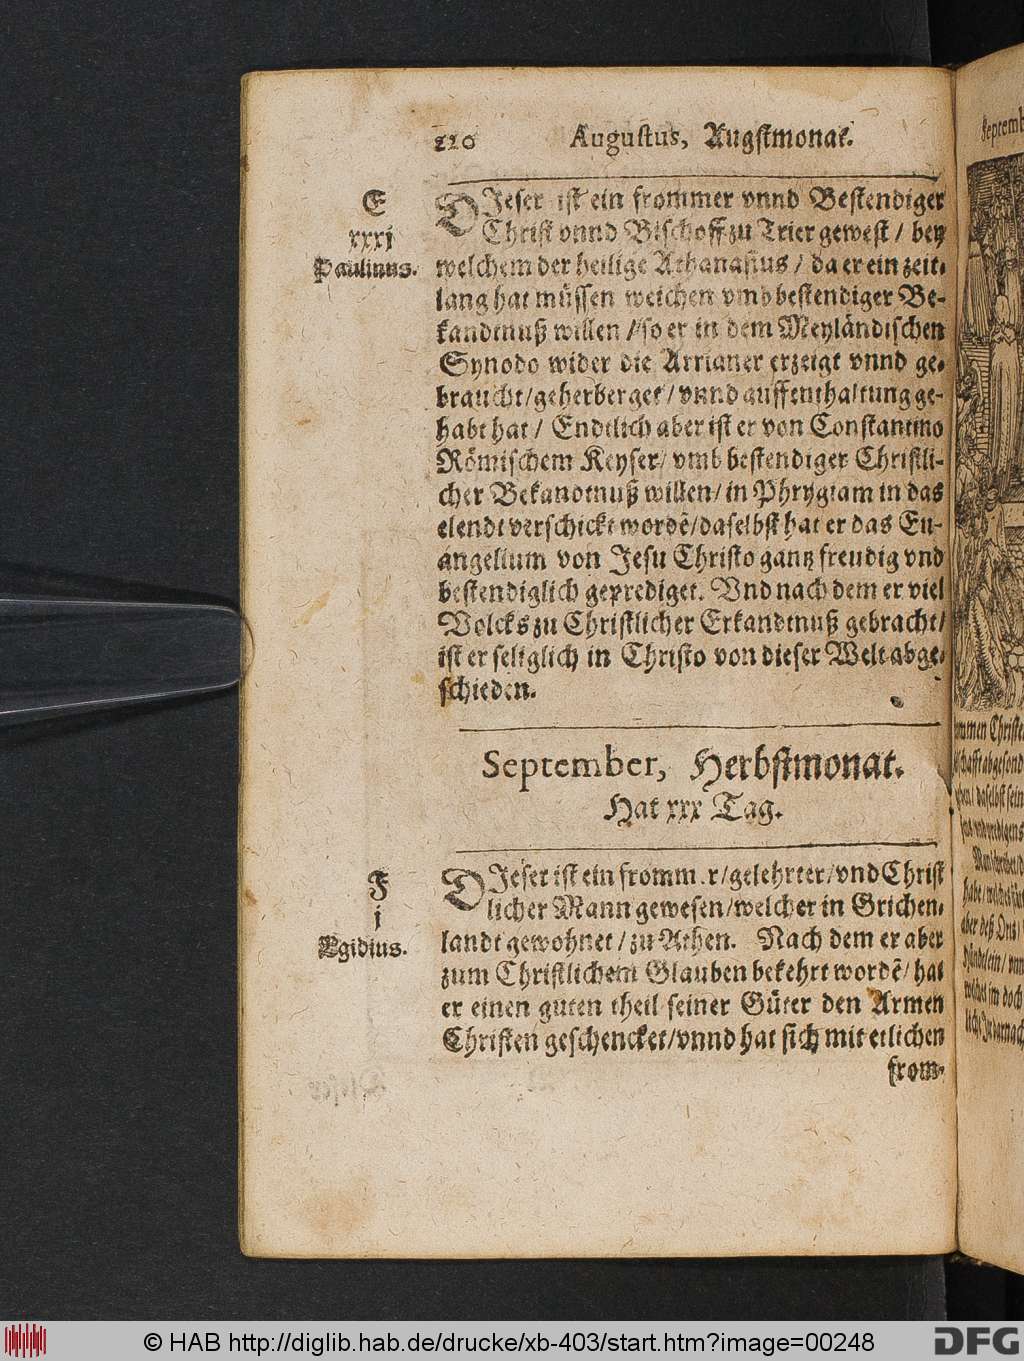 220 Augustus, Augstmonat.
E
xxxj
Paulinus.
DJeser ist ein frommer vnnd Bestendiger
Christ vnnd Bischoff zu Trier gewest / bey
welchem der heilige Athanasius / da er ein zeit-
lang hat müssen weichen vmb bestendiger Be-
kandtnuß willen / so er in dem Meyländischen
Synodo wider die Arrianer erzeigt vnnd ge-
braucht / geherberget / vnnd auffenthaltung ge-
habt hat / Endtlich aber ist er von Constantino
Römischem Keyser / vmb bestendiger Christli-
cher Bekandtnuß willen / in Phrygiam in das
elendt verschickt wordē / daselbst hat er das Eu-
angelium von Jesu Christo gantz freudig vnd
bestendiglich geprediget. Vnd nach dem er viel
Volcks zu Christlicher Erkandtnuß gebracht /
ist er seliglich in Christo von dieser Welt abge-
schieden.
September, Herbstmonat.
Hat xxx Tag.
F
j
Egidius.
DJeser ist ein frommer / gelehrter / vnd Christ
licher Mann gewesen / welcher in Grichen-
landt gewohnet / zu Athen. Nach dem er aber
zum Christlichem Glauben bekehrt wordē / hat
er einen guten theil seiner Güter den Armen
Christen geschencket / vnnd hat sich mit etlichen
from-
© HAB http://diglib.hab.de/drucke/xb-403/start.htm?image=00248
DFG